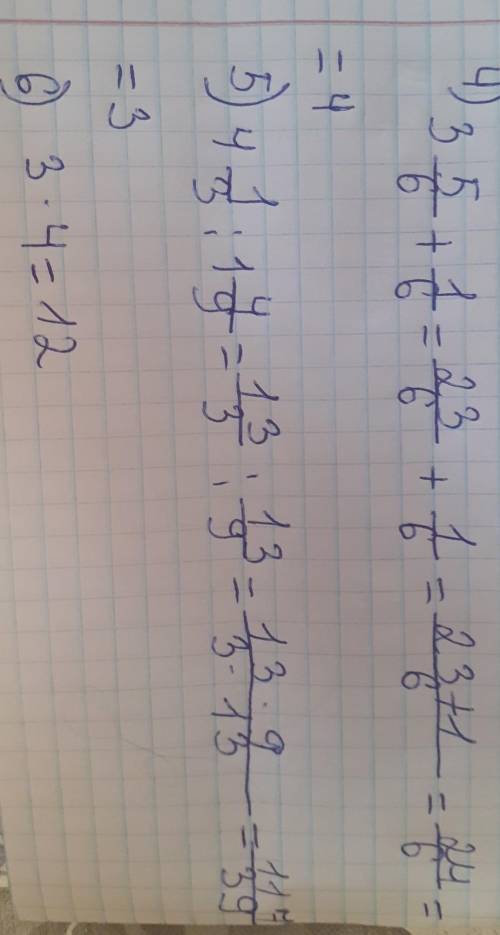 4) 3 5/6 + 1/6 = 23/6 + 1/6 = 23+1/6 = 24/6 =
= 4
5) 4 1/3 : 1 4/9 = 13/3 : 13/9 = 13·9/3·13 = 117/39
= 3
6) 3 · 4 = 12